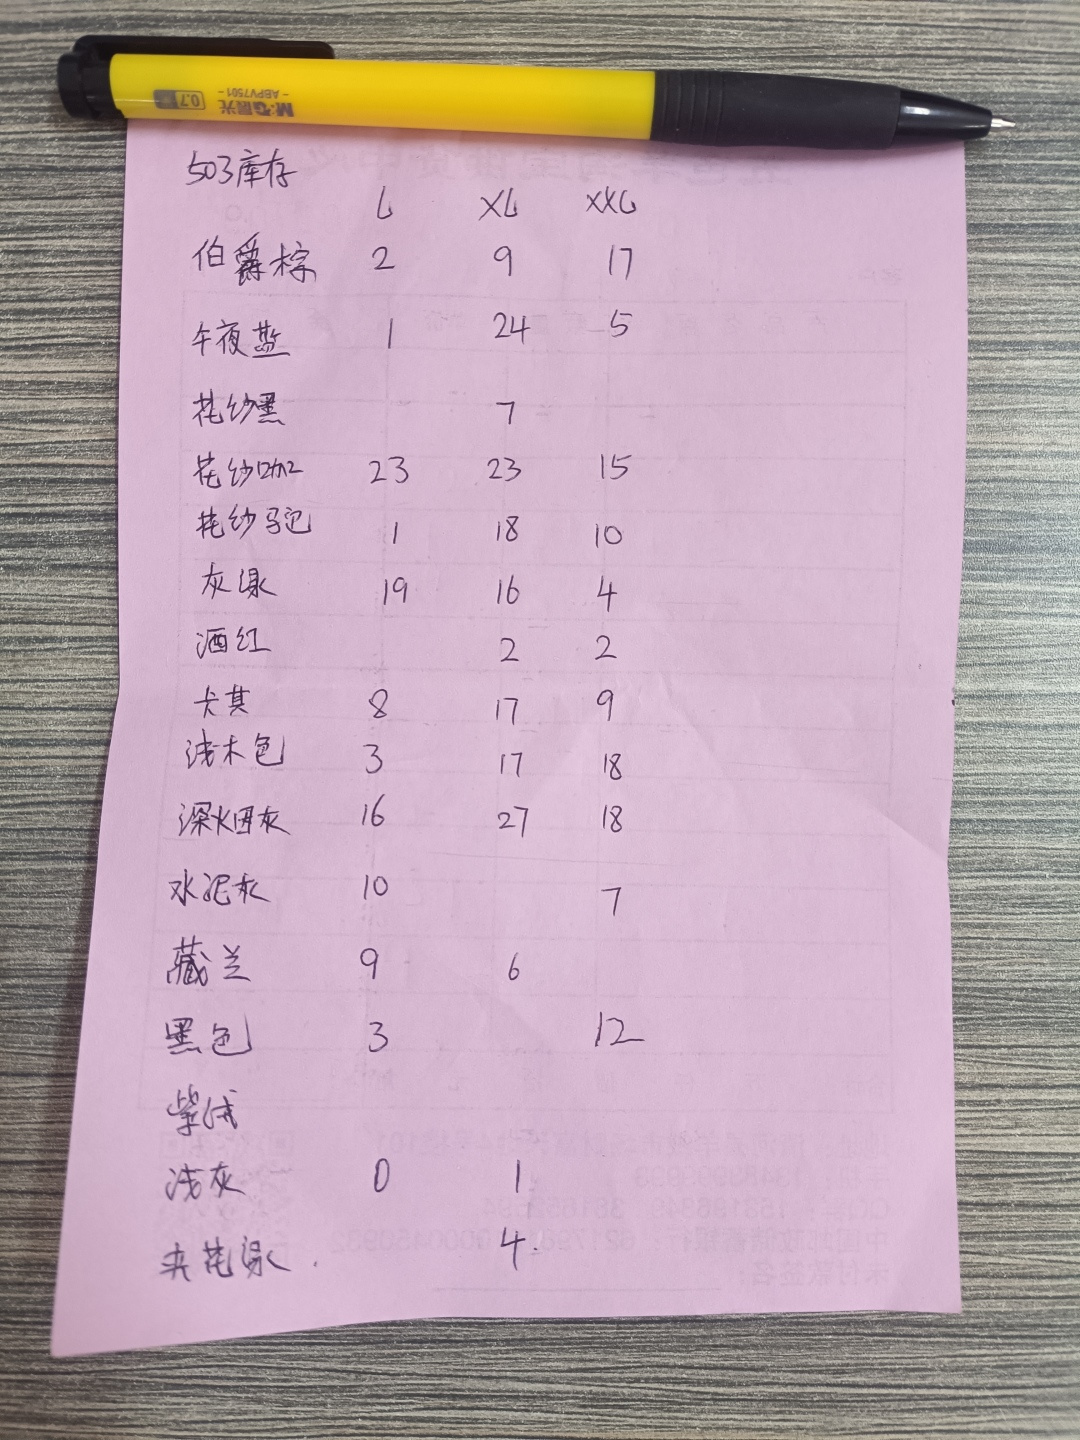 M&G晨光
-ABPV7501-
0.7
503库存
L XL XXL
伯爵棕 2 9 17
午夜蓝 1 24 5
花纱黑 7
花纱咖 23 23 15
花纱驼 1 18 10
灰绿 19 16 4
酒红 2 2
卡其 8 17 9
浅木色 3 17 18
深烟灰 16 27 18
水泥灰 10 7
藏兰 9 6
黑色 3 12
浅灰 0 1
夹花绿 4